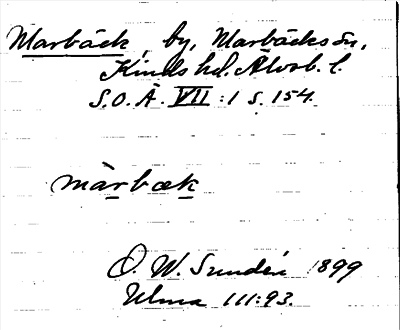 Marbäck, by, Marbäcks sn,
Kinds hd. Älvsb. l.
S.O.Ä. VII:1 s. 154.
màrbæk
O. W. Sundén 1899
Ulma 111:93.